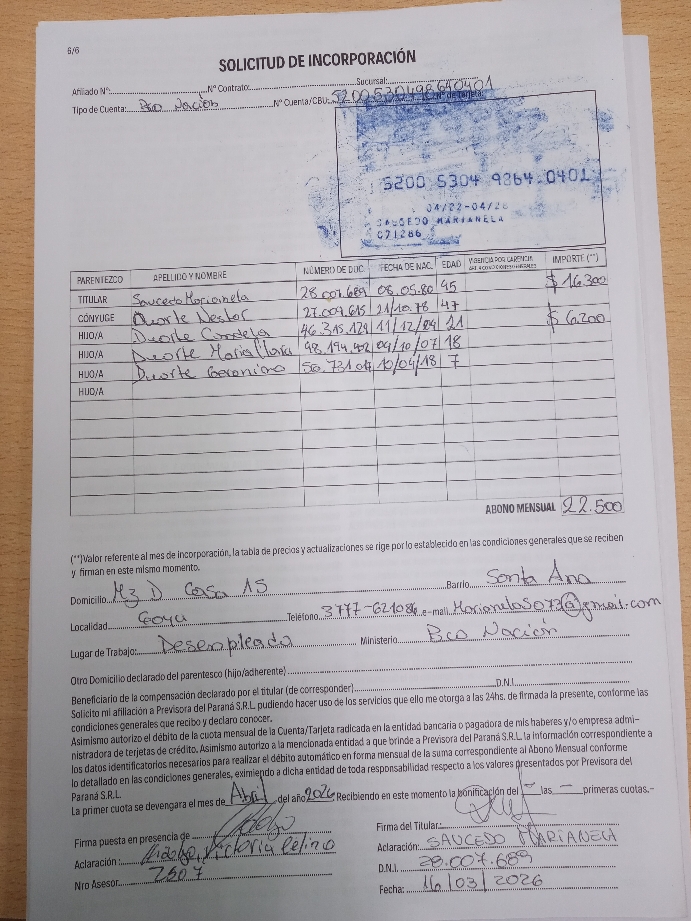 6/6
SOLICITUD DE INCORPORACIÓN
Afiliado N°: N° Contrato: Sucursal:
Tipo de Cuenta: Bco Nación N° Cuenta/CBU: N° de Tarjeta:
5200 5304 9864 0401
04/22-04/28
SAUCEDO MARIANELA
071286
PARENTEZCO APELLIDO Y NOMBRE NÚMERO DE DOC. FECHA DE NAC. EDAD VIGENCIA POR CARENCIA IMPORTE (**)
TITULAR Saucedo Marianela 28.007.689 08.05.80 45 $ 16.300
CÓNYUGE Duarte Nestor 27.009.615 21/10.78 47
HIJO/A Duarte Candela 46.315.129 11/12/04 21 $ 6.200
HIJO/A Duarte Maria 48.194.402 09/10/07 18
HIJO/A Duarte Geronimo 56.731.017 10/04/18 7
HIJO/A
ABONO MENSUAL 22.500
(**)Valor referente al mes de incorporación, la tabla de precios y actualizaciones se rige por lo establecido en las condiciones generales que se reciben
y firman en este mismo momento.
Domicilio Mz D Casa 15 Barrio Santa Ana
Localidad Goya Teléfono 3777-621086 e-mail Marianelas073@gmail.com
Lugar de Trabajo: Desempleado Ministerio Bco Nación
Otro Domicilio declarado del parentesco (hijo/adherente)
Beneficiario de la compensación declarado por el titular (de corresponder) D.N.I.
Solicito mi afiliación a Previsora del Paraná S.R.L. pudiendo hacer uso de los servicios que ello me otorga a las 24hs. de firmada la presente, conforme las
condiciones generales que recibo y declaro conocer.
Asimismo autorizo el débito de la cuota mensual de la Cuenta/Tarjeta radicada en la entidad bancaria o pagadora de mis haberes y/o empresa admi-
nistradora de tarjetas de crédito. Asimismo autorizo a la mencionada entidad a que brinde a Previsora del Paraná S.R.L. la información correspondiente a
los datos identificatorios necesarios para realizar el débito automático en forma mensual de la suma correspondiente al Abono Mensual conforme
lo detallado en las condiciones generales, eximiendo a dicha entidad de toda responsabilidad respecto a los valores presentados por Previsora del
Paraná S.R.L.
La primer cuota se devengara el mes de Abril del año 2026 Recibiendo en este momento la bonificación del - las - primeras cuotas.-
Firma puesta en presencia de Firma del Titular:
Aclaración: Victoria Celina Aclaración: SAUCEDO MARIANELA
Nro Asesor 2507 D.N.I. 28.007.689
Fecha: 16/03/2026